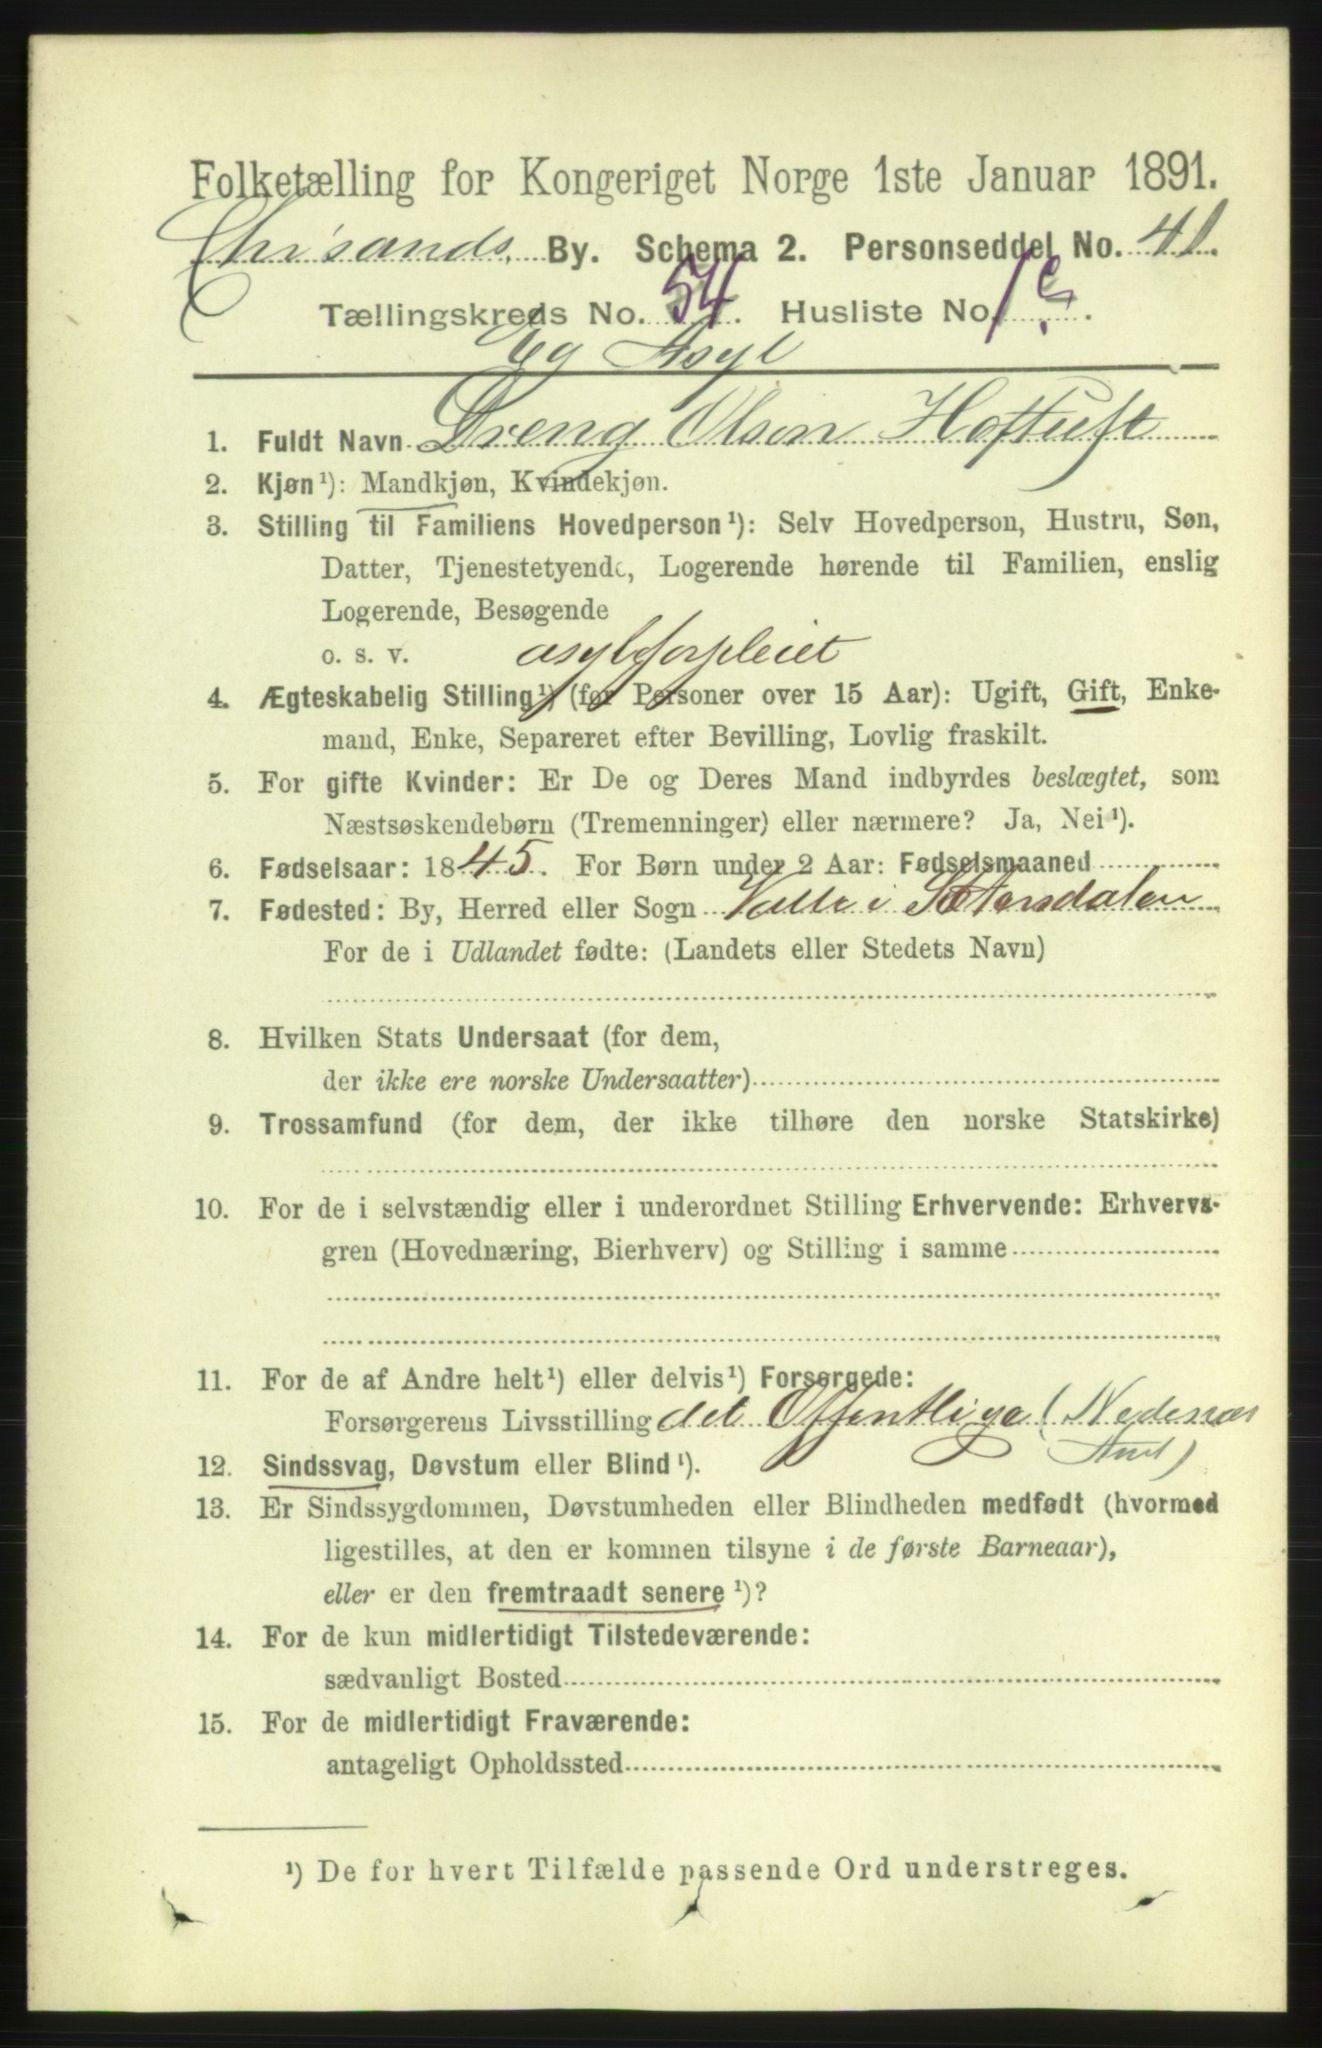 Folketælling for Kongeriget Norge 1ste Januar 1891.
Chr'sands By. Schema 2. Personseddel No. 41.
Tællingskreds No. 54. Husliste No. 1 c.
Eg Asyl
1. Fuldt Navn Dreng Olsen Hoftuft
2. Kjøn ¹): Mandkjøn, Kvindekjøn.
3. Stilling til Familiens Hovedperson ¹): Selv Hovedperson, Hustru, Søn,
Datter, Tjenestetyende, Logerende hørende til Familien, enslig
Logerende, Besøgende
o. s. v. asylforpleiet
4. Ægteskabelig Stilling ¹) (før Personer over 15 Aar): Ugift, Gift, Enke-
mand, Enke, Separeret efter Bevilling, Lovlig fraskilt.
5. For gifte Kvinder: Er De og Deres Mand indbyrdes beslægtet, som
Næstsøskendebørn (Tremenninger) eller nærmere? Ja, Nei ¹).
6. Fødselsaar: 1845. For Børn under 2 Aar: Fødselsmaaned
7. Fødested: By, Herred eller Sogn Valle i Sætersdalen
For de i Udlandet fødte: (Landets eller Stedets Navn)
8. Hvilken Stats Undersaat (for dem,
der ikke ere norske Undersaatter)
9. Trossamfund (for dem, der ikke tilhøre den norske Statskirke)
10. For de i selvstændig eller i underordnet Stilling Erhvervende: Erhvervs-
gren (Hovednæring, Bierhverv) og Stilling i samme
11. For de af Andre helt ¹) eller delvis ¹) Forsørgede:
Forsørgerens Livsstilling det Offentlige (Nedenæs
Amt)
12. Sindssvag, Døvstum eller Blind ¹).
13. Er Sindssygdommen, Døvstumheden eller Blindheden medfødt (hvormed
ligestilles, at den er kommen tilsyne i de første Barneaar),
eller er den fremtraadt senere ¹)?
14. For de kun midlertidigt Tilstedeværende:
sædvanligt Bosted
15. For de midlertidigt Fraværende:
antageligt Opholdssted
¹) De for hvert Tilfælde passende Ord understreges.